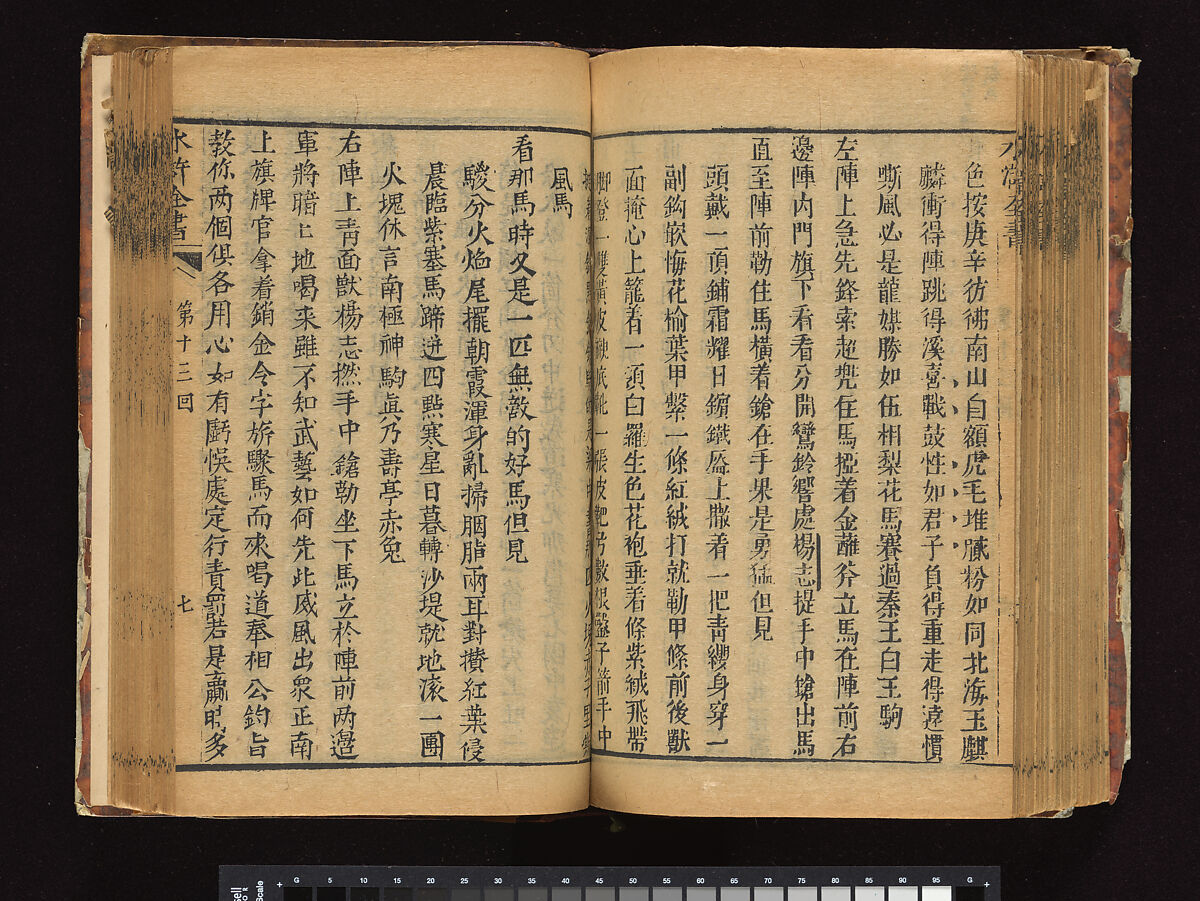 色按庚辛彷彿南山白額虎毛堆膩粉如同北海玉麒
麟衝得陣跳得溪喜戰鼓性如君子負得重走得遠慣
嘶風必是龍媒勝如伍相梨花馬賽過秦王白玉駒
左陣上急先鋒索超兜住馬掗着金蘸斧立馬在陣前右
邊陣內門旗下看看分開鸞鈴響處楊志提手中鎗出馬
直至陣前勒住馬橫着鎗在手果是勇猛但見
頭戴一頂鋪霜耀日鑌鐵盔上撒着一把青纓身穿一
副鈎嵌悔花榆葉甲繫一條紅絨打就勒甲條前後獸
面掩心上籠着一領白羅生色花袍垂着條紫絨飛帶
脚登一雙黃皮襯底靴一張皮靶弓數根鑿子箭手中
風馬
看那馬時又是一匹無敵的好馬但見
騣分火焰尾擺朝霞渾身亂掃胭脂兩耳對攢紅葉侵
晨臨紫塞馬蹄迸四點寒星日暮轉沙堤就地滚一團
火塊休言南極神駒眞乃壽亭赤兔
右陣上靑面獸楊志撚手中鎗勒坐下馬立於陣前两邉
軍將暗上地喝來雖不知武藝如何先此威風出衆正南
上旗牌官拿着銷金令字旂驟馬而來喝道奉相公鈞旨
教你两個俱各用心如有虧悞處定行責罰若是贏時多
水滸全書
第十三回
七